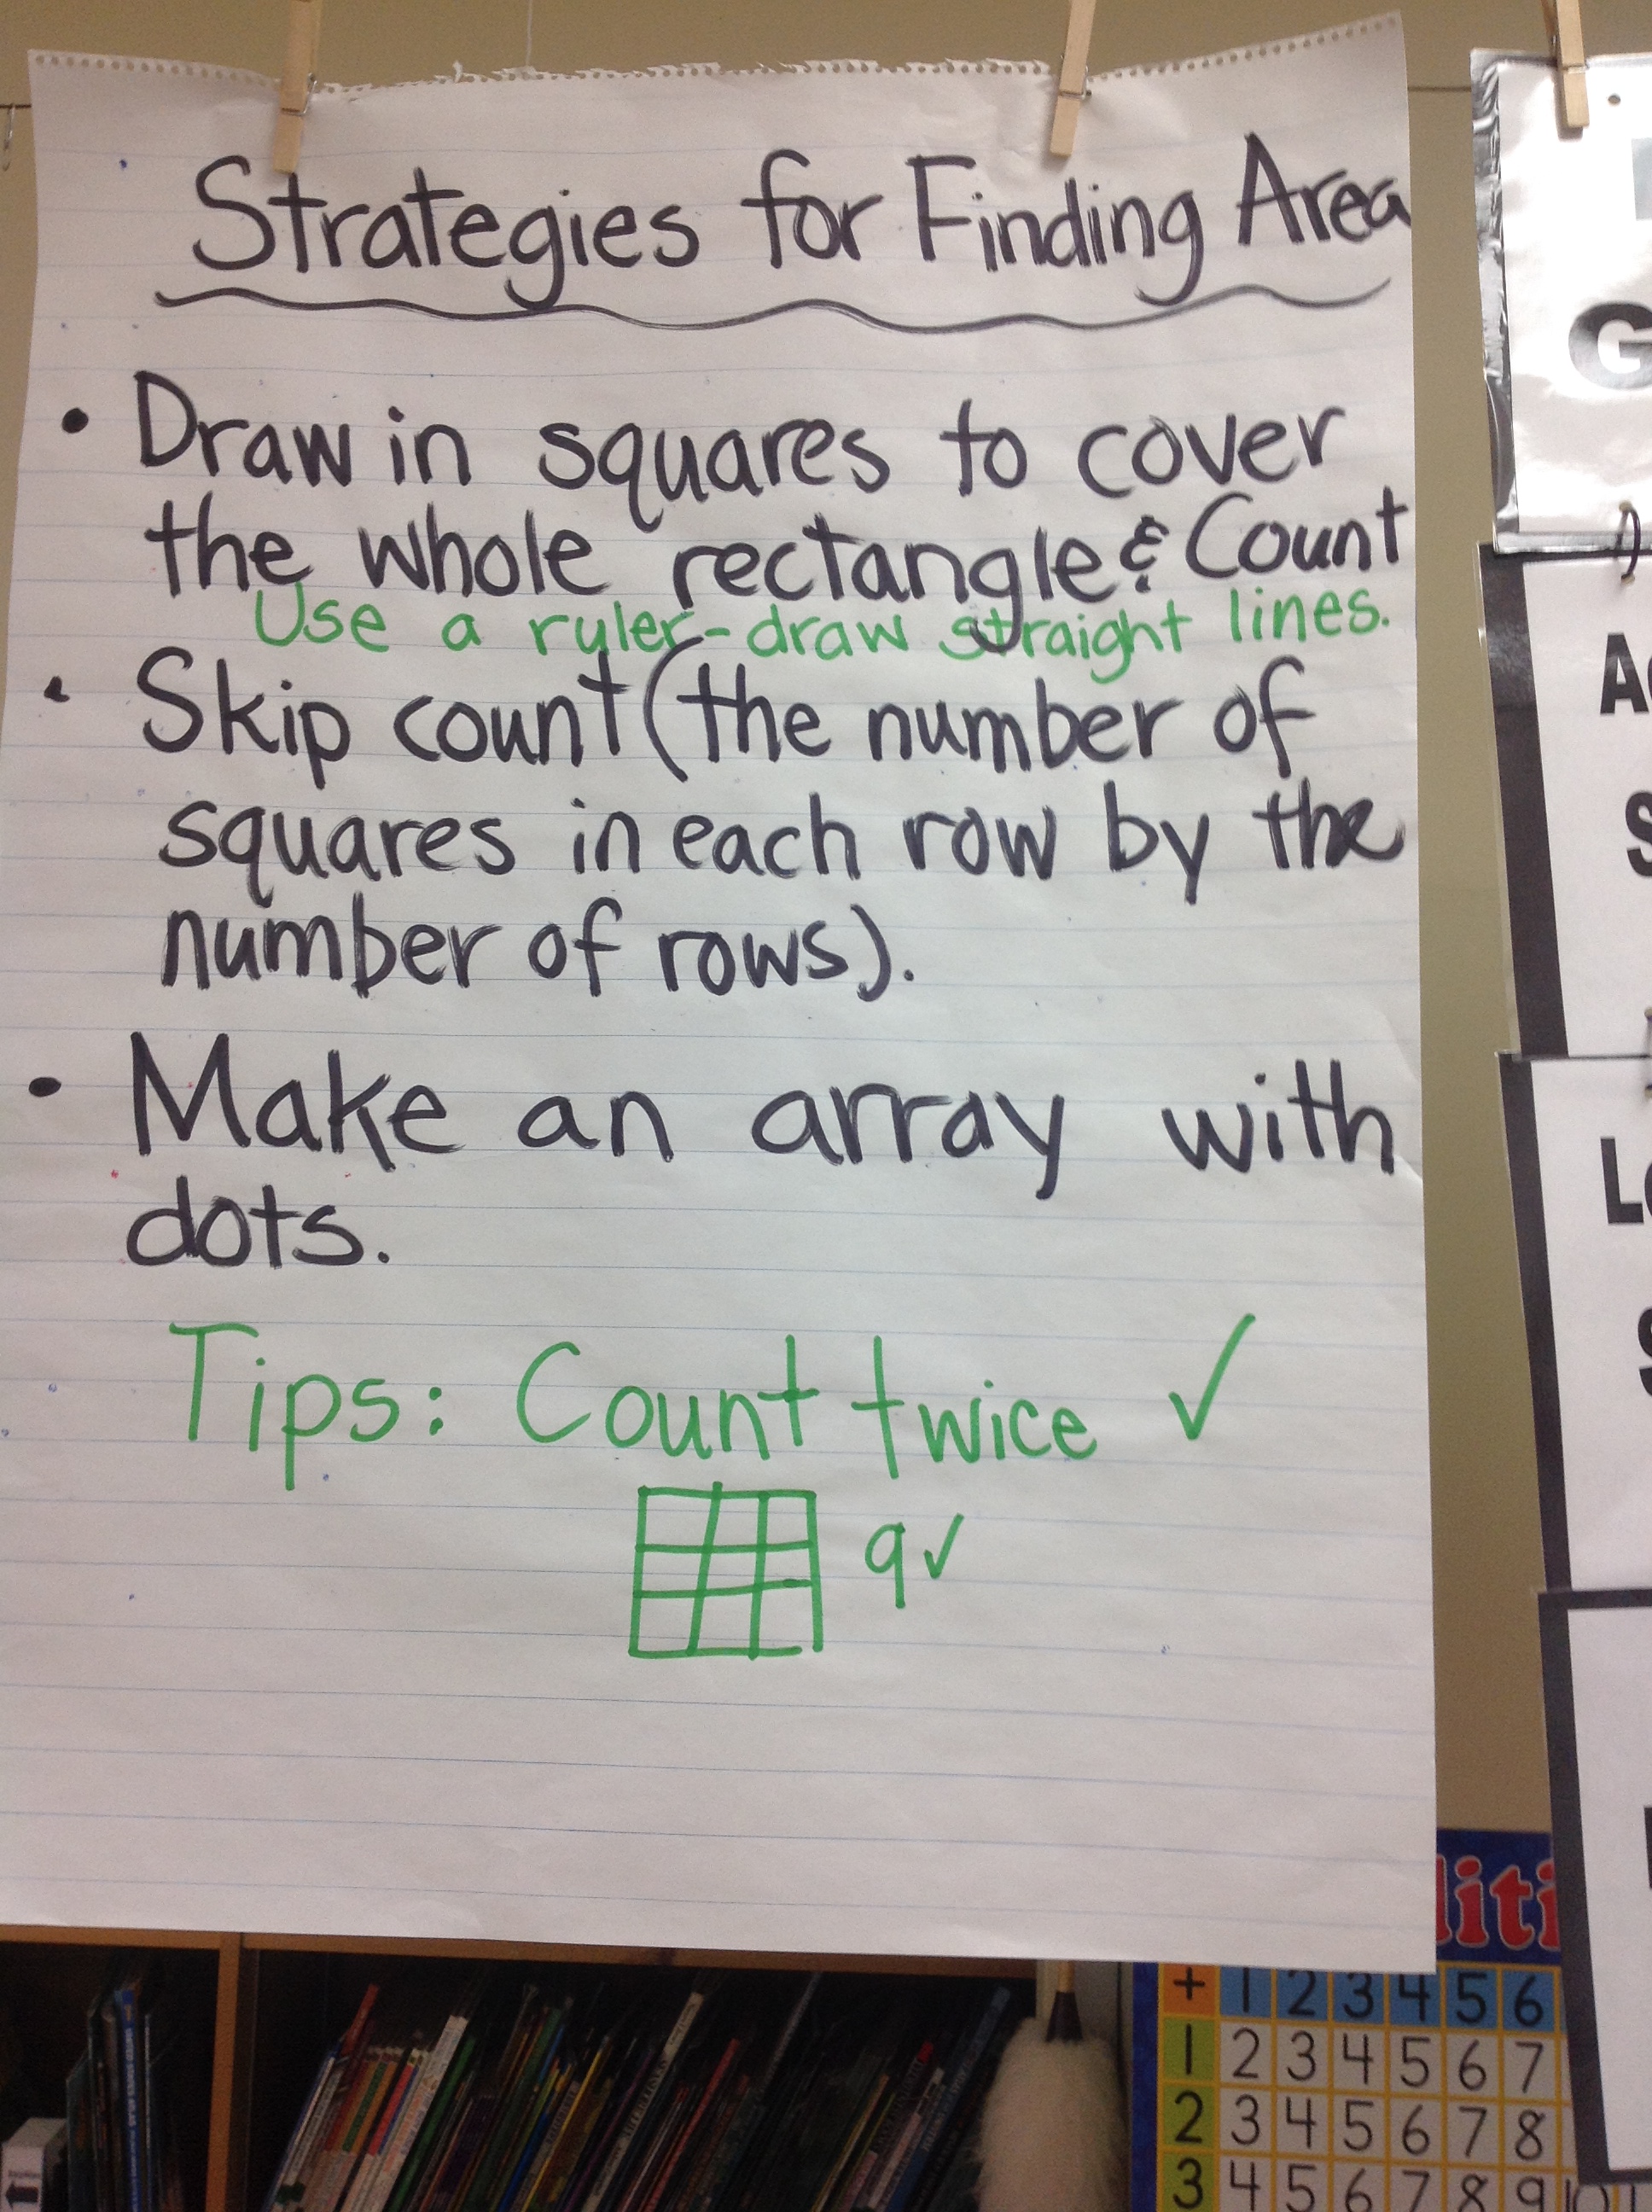 Strategies for Finding Area
• Draw in squares to cover
the whole rectangle & Count
Use a ruler-draw straight lines.
• Skip count (the number of
squares in each row by the
number of rows).
• Make an array with
dots.
Tips: Count twice ✓
9✓
G
S
+ 1 2 3 4 5 6
1 2 3 4 5 6 7
2 3 4 5 6 7 8
3 4 5 6 7 8 9 10